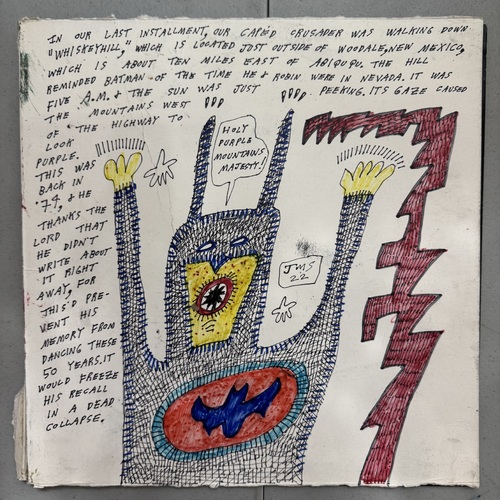 IN OUR LAST INSTALLMENT, OUR CAPED CRUSADER WAS WALKING DOWN
"WHISKEYHILL," WHICH IS LOCATED JUST OUTSIDE OF WOODALE, NEW MEXICO,
WHICH IS ABOUT TEN MILES EAST OF ABIQUQU. THE HILL
REMINDED BATMAN OF THE TIME HE & ROBIN WERE IN NEVADA. IT WAS
FIVE A.M. & THE SUN WAS JUST PEEKING. ITS GAZE CAUSED
THE MOUNTAINS WEST
OF THE HIGHWAY TO
LOOK
PURPLE.
THIS WAS
BACK IN
'74, & HE
THANKS THE
LORD THAT
HE DIDN'T
WRITE ABOUT
IT RIGHT
AWAY, FOR
THIS'D PRE-
VENT HIS
MEMORY FROM
DANCING THESE
50 YEARS. IT
WOULD FREEZE
HIS RECALL
IN A DEAD
COLLAPSE.
HOLY
PURPLE
MOUNTAINS
MAJESTY!
JMS
22